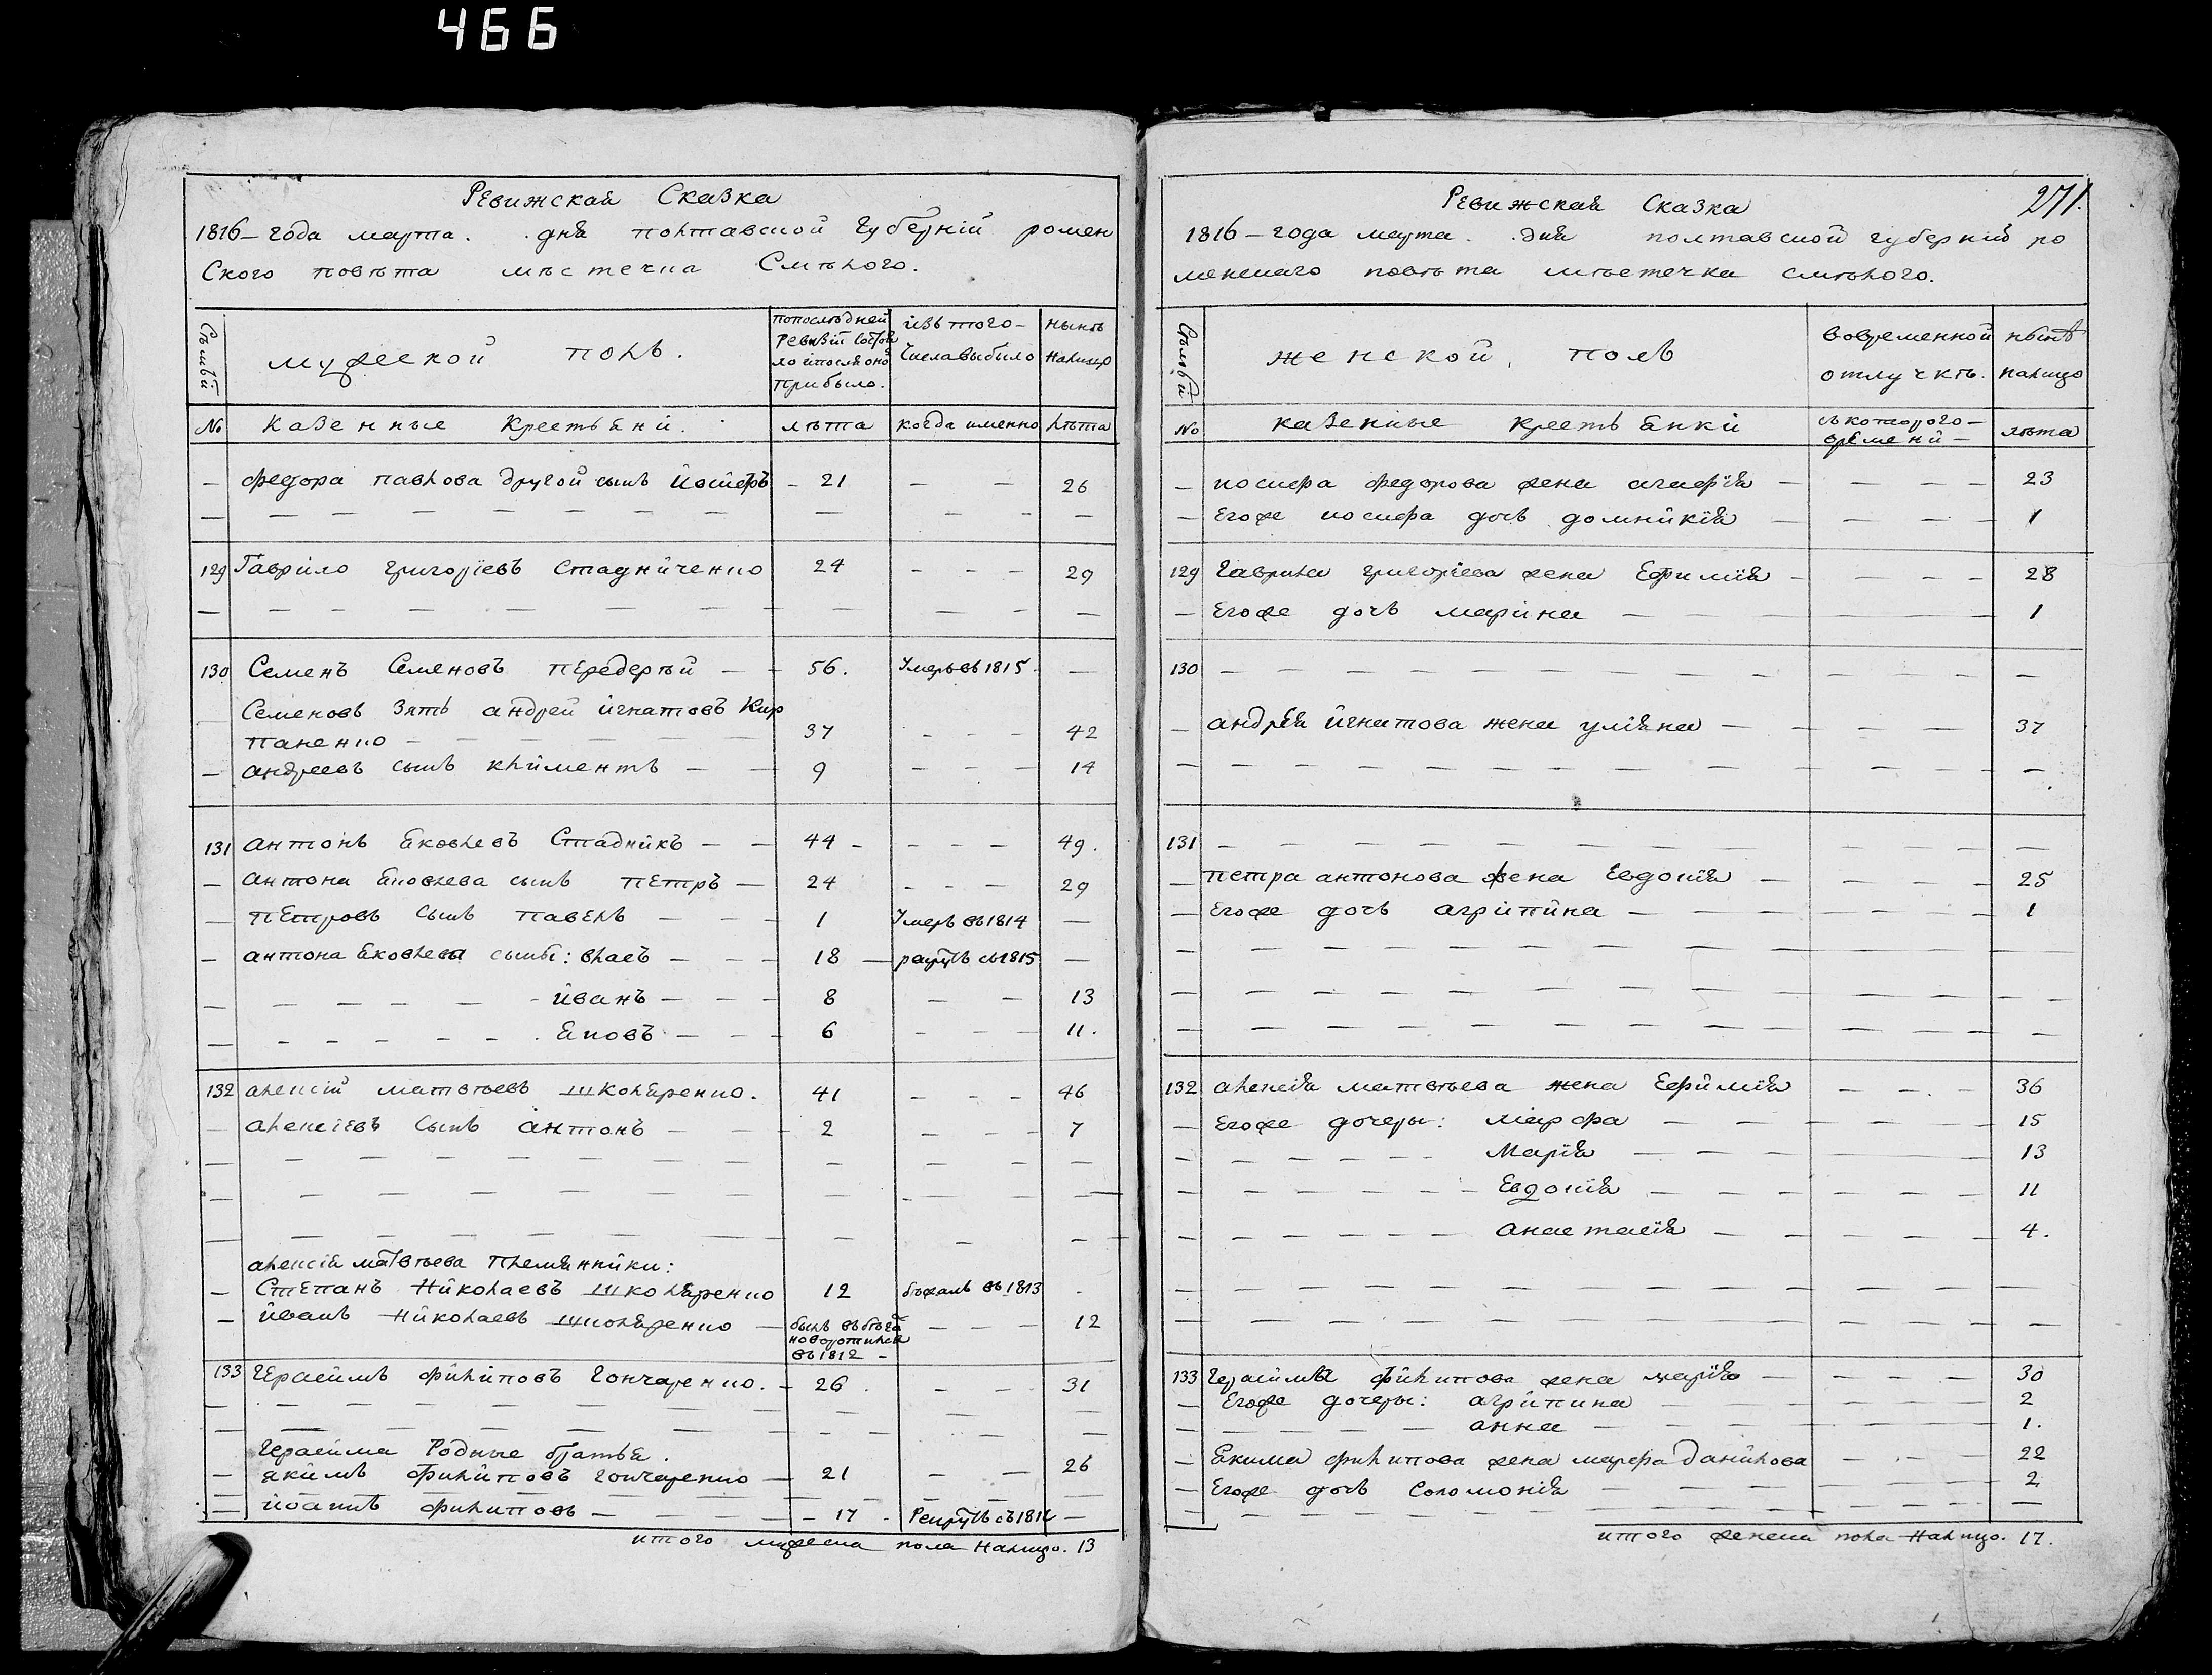 466
Ревижской Сказка
1816 – года марта . . дня полтавской Губерній ромен
Ского повѣта мѣстечка Смѣлого.
Семьи
мужеской полъ.
попослѣдней
Ревизіи состоя
ло ипослѣоной
прибыло.
изъ того –
Числавыбыло
нынѣ
налицо
№ Казенные Крестьяни. лѣта когда именно лѣта
– федора павлова другой сынъ йосифъ – 21 – – 26
129 Гаврило григоріевъ стадниченко 24 – – – 29
130 Семенъ Семеновъ передерѣй – – 56. Умеръ въ 1815. –
Семеновъ Зять андрей игнатовъ Кир
паненко – 37 – – – 42
– андреевъ сынъ климентъ – – 9 – – – 14
131 антонъ яковлевъ Стадникъ – – 44 – – – – 49.
– антона яковлева сынъ петръ – 24 – – – 29
– петровъ сынъ павелъ – – – 1 Умеръ въ 1814 –
– антона яковлева сыны: власъ – – – 18 – рекрутъ съ 1815 –
– иванъ – – – 8 – – 13
– яковъ – – – 6 – – – 11.
132 алексій матвѣевъ школяренко. 41 – – – 46
– алексіевъ сынъ антонъ – – – 2 – – – 7
алексія матвѣева племянники:
– степанъ николаевъ школяренко 12 бѣжалъ въ 1813 .
– иванъ николаевъ школяренко – былъ въ бѣгах
новоротился
въ 1812 – – – – 12
133 герасимъ филиповъ гончаренко. – 26 . – – 31
герасима Родные братья.
– якимъ филиповъ гончаренко – 21 – – 26
– иванъ филиповъ – – – – – 17 . Рекрутъ съ 1811 –
итого мужеска пола налицо. 13
271.
Ревижская Сказка
1816 – года марта . . дня полтавской губерній ро
менского повѣта мѣстечка смѣлого.
Семьи
женской полъ
вовременной
отлучкѣ.
нынѣ
налицо
№ казенные крестьянки съ которого –
времени – лѣта
– иосифа федорова жена агафія – – – – 23
– Егоже иосифа дочь домникія – – – – 1
129 гаврила григоріева жена Ефимія – – – – 28
– Егоже дочь марина – – – – 1
130 – – –
– андрея игнатова жена уліяна – – – – 37
131 – – –
– петра антонова жена Евдокія – – – – 25
– Егоже дочь агрипина – – – – 1
132 алексія матвѣева жена Ефимія – – – 36
– Егоже дочеры: марфа – – – 15
– марія – – – 13
– Евдокія – – – 11
– анастасія – – – 4.
133 герасима филипова жена марія – – – – 30
– Егоже дочеры: агрипина – – – 2
– анна – – – 1.
– Екима филипова жена марфа данилова – – – 22
– Егоже дочь соломонія – – – 2
итого женска пола налицо. 17.